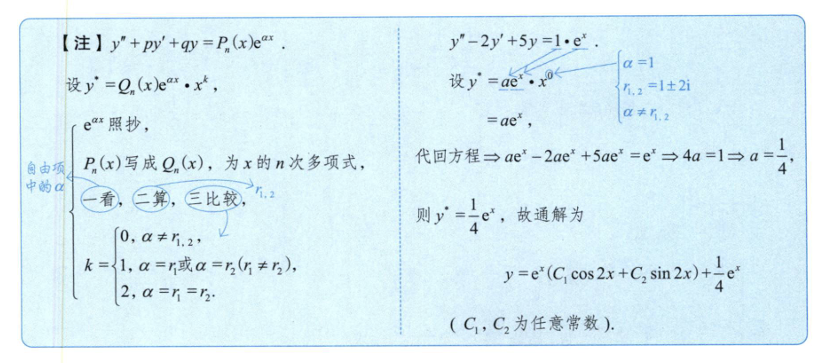 【注】y″+py′+qy=Pₙ(x)e^{αx}.
设y*=Qₙ(x)e^{αx}•x^k,
e^{αx}照抄,
Pₙ(x)写成Qₙ(x),为x的n次多项式,
自由项
中的α
一看,二算,三比较,
r₁,₂
k={0, α≠r₁,₂,
1, α=r₁或α=r₂(r₁≠r₂),
2, α=r₁=r₂.
y″-2y′+5y=1•e^x.
设y*=ae^x•x^0
=ae^x,
α=1
r₁,₂=1±2i
α≠r₁,₂
代回方程⇒ae^x-2ae^x+5ae^x=e^x⇒4a=1⇒a=1/4,
则y*=1/4 e^x,故通解为
y=e^x(C₁cos2x+C₂sin2x)+1/4 e^x
(C₁,C₂为任意常数).